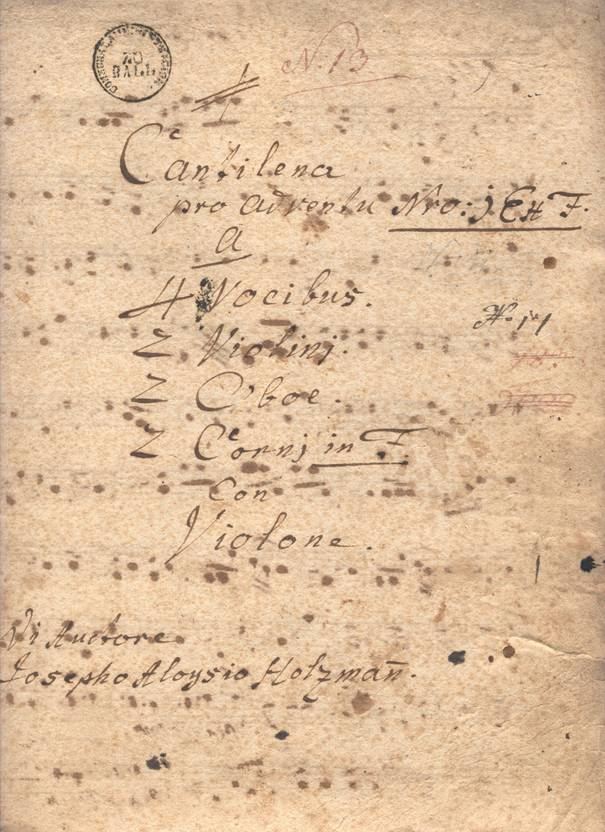 ZU
HALL
N. 13
Cantilena
pro adventu Nro: j Ex F.
a
4 Vocibus.
2 Violinj.
2 Oboe.
2 Cornj in F.
con
Violone.
Auctore
Josepho Aloysio Holzman̄.